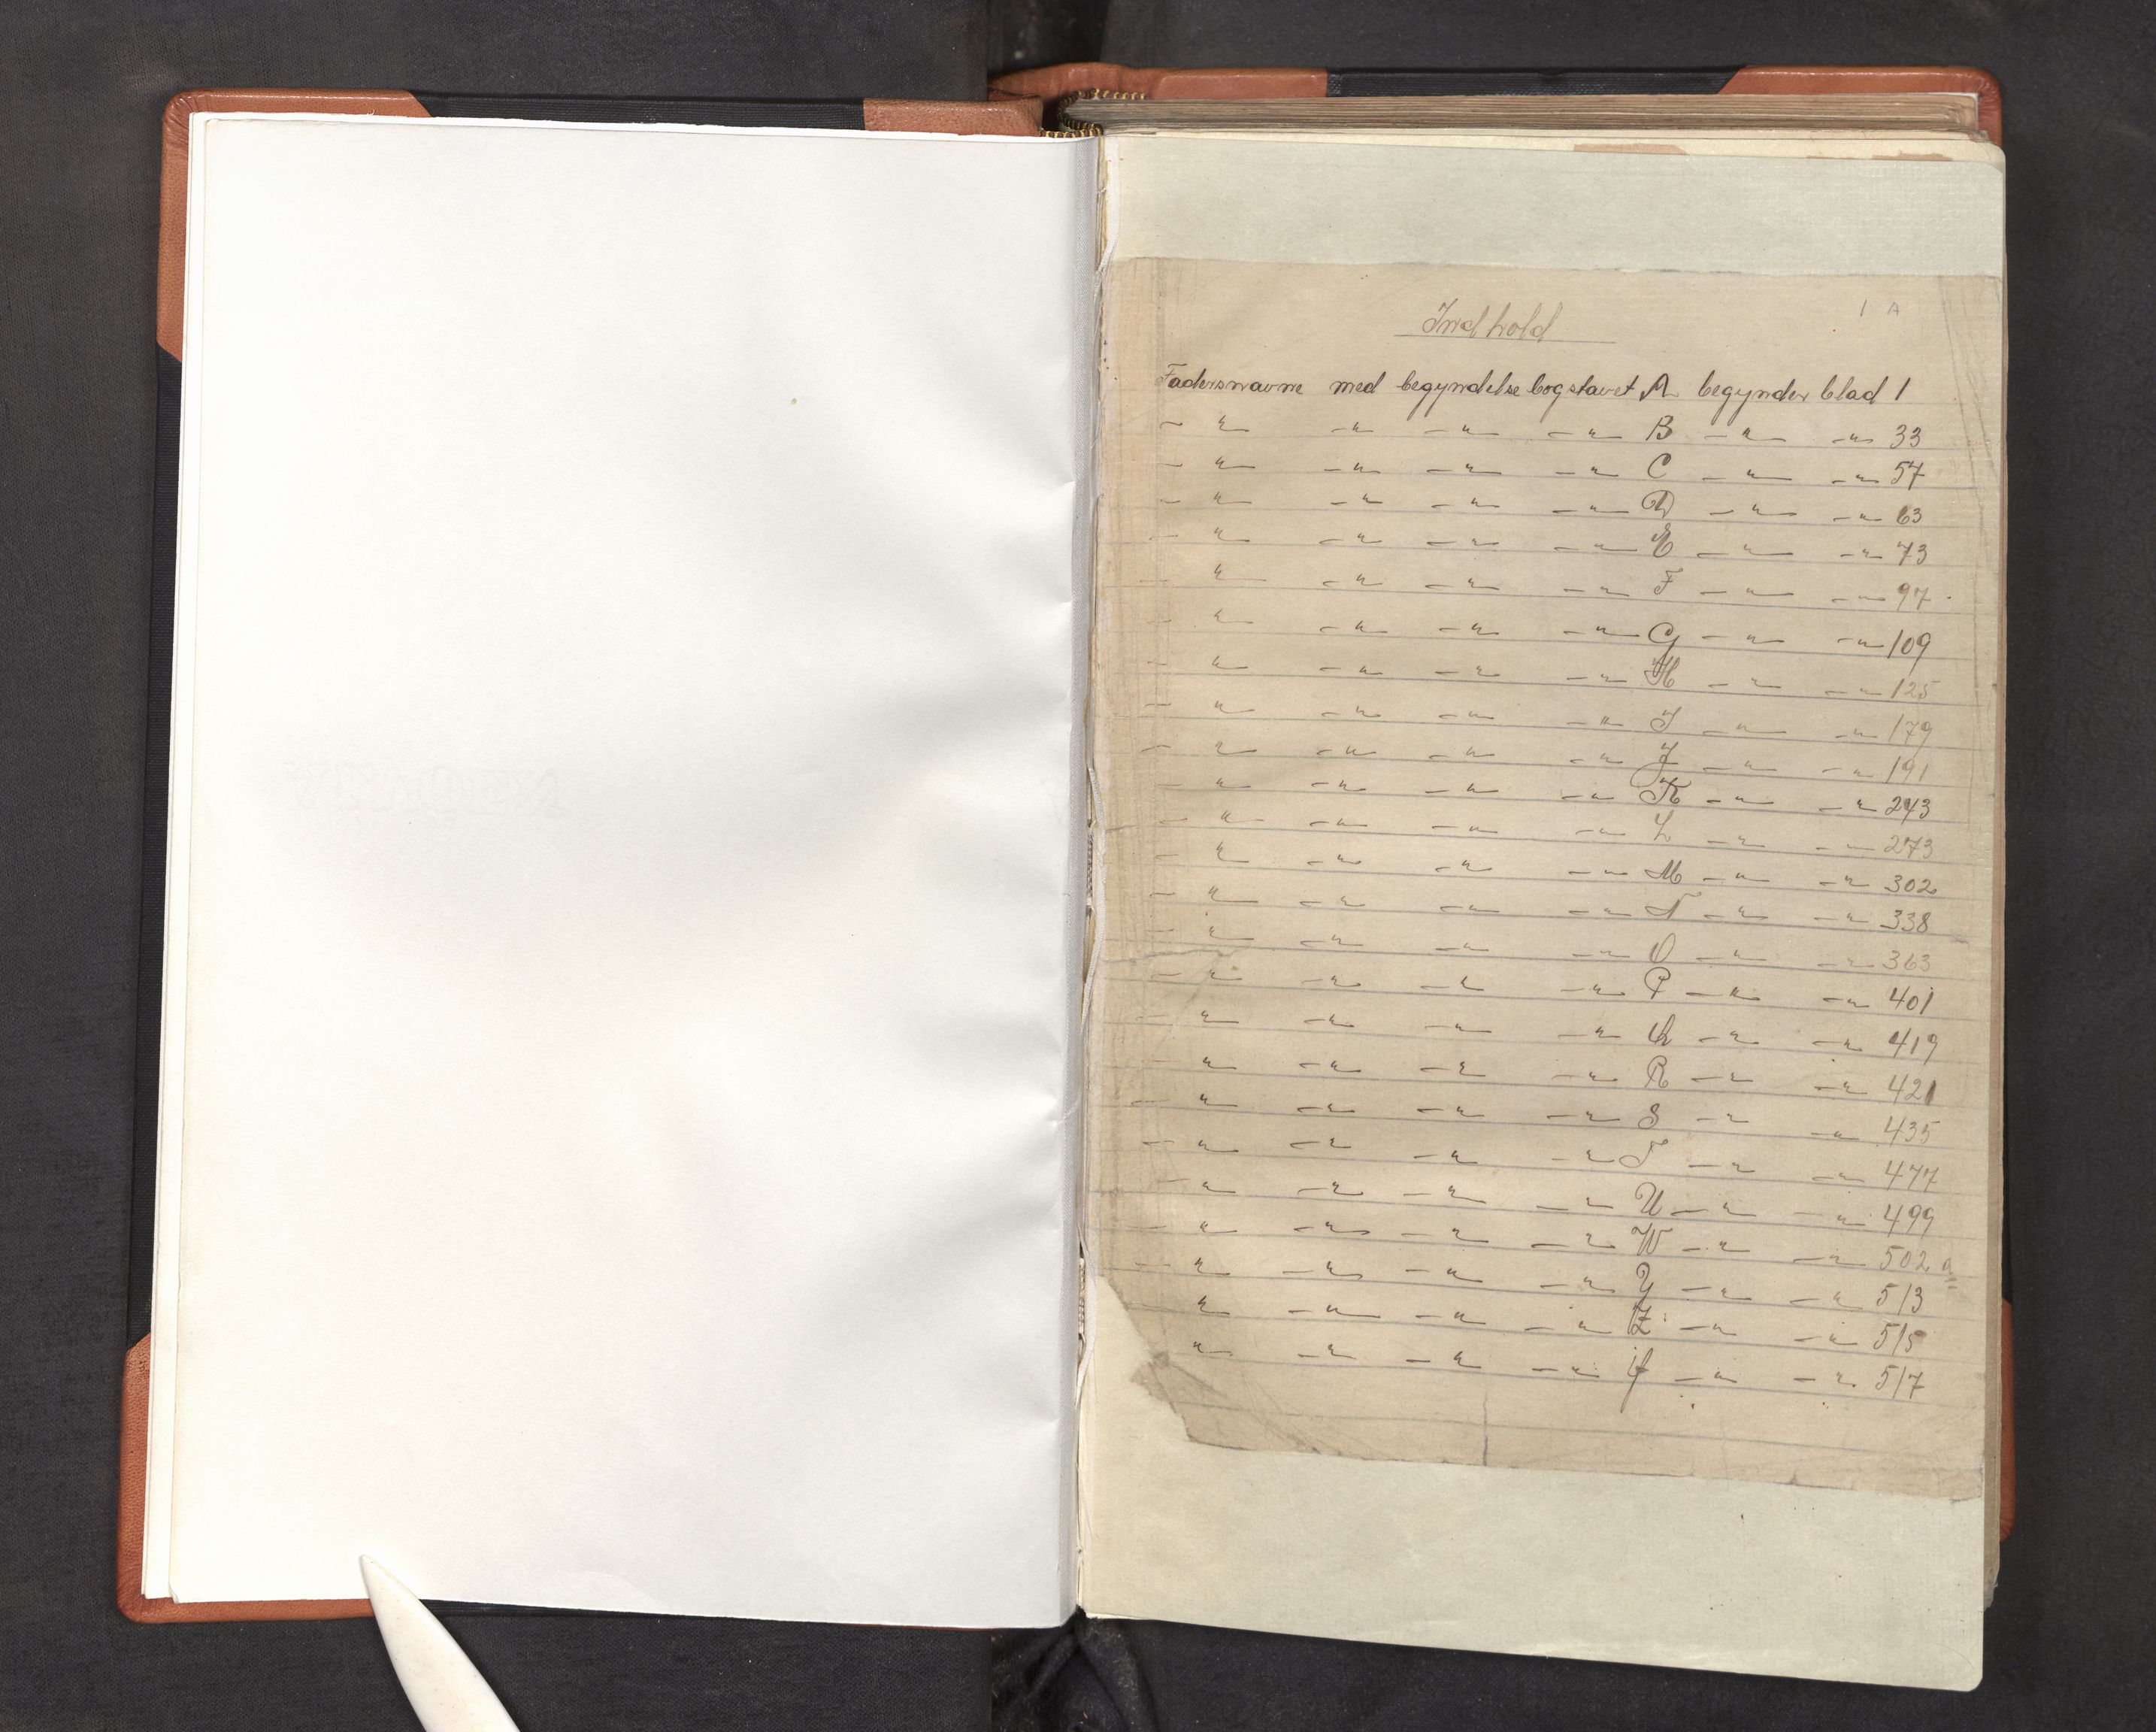 1 A
Indhold
Fadersnavne med begyndelsebogstavet A begynder blad 1
- " - - " - - " - - " - B - " - - " 33
- " - - " - - " - - " - C - " - - " 57
- " - - " - - " - - " - D - " - - " 63
- " - - " - - " - - " - E - " - - " 73
- " - - " - - " - - " - F - " - - " 97
- " - - " - - " - - " - G - " - - " 109
- " - - " - - " - - " - H - " - - " 125
- " - - " - - " - - " - I - " - - " 179
- " - - " - - " - - " - J - " - - " 191
- " - - " - - " - - " - K - " - - " 243
- " - - " - - " - - " - L - " - - " 273
- " - - " - - " - - " - M - " - - " 302
- " - - " - - " - - " - N - " - - " 338
- " - - " - - " - - " - O - " - - " 363
- " - - " - - " - - " - P - " - - " 401
- " - - " - - " - - " - Q - " - - " 419
- " - - " - - " - - " - R - " - - " 421
- " - - " - - " - - " - S - " - - " 435
- " - - " - - " - - " - T - " - - " 477
- " - - " - - " - - " - U - " - - " 499
- " - - " - - " - - " - W - " - - " 502 a
- " - - " - - " - - " - Y - " - - " 513
- " - - " - - " - - " - Z - " - - " 515
" - - " - - " - - " - Ø - " - - " 517